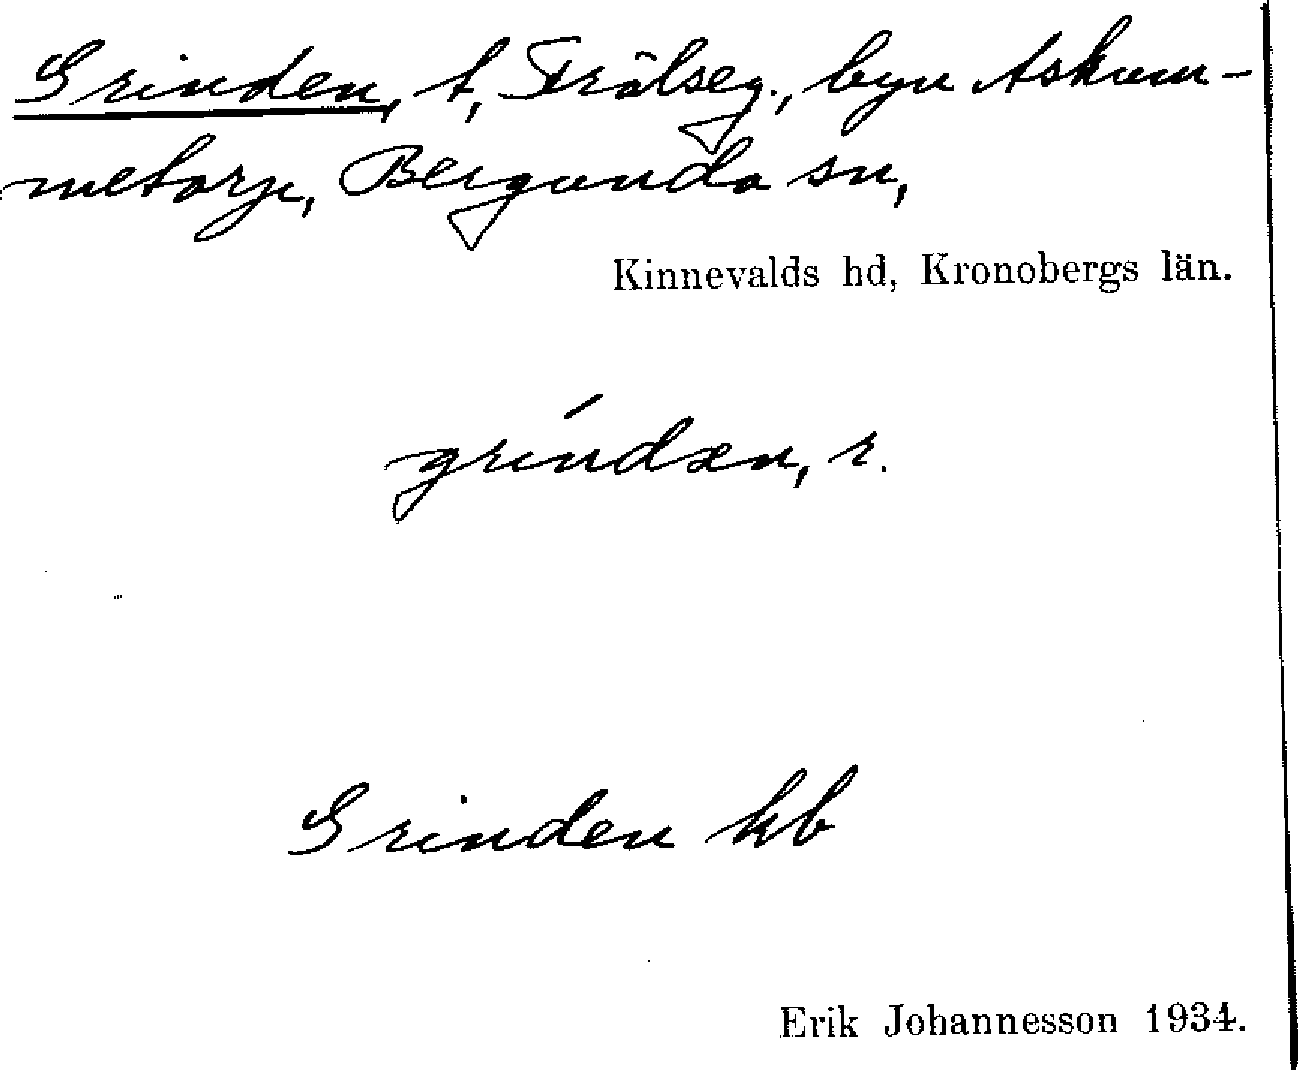 Grinden, t, Frälseg., byn Askum-
metorp, Bergunda sn,
Kinnevalds hd, Kronobergs län.
gríndæn, r.
Grinden kb
Erik Johannesson 1934.